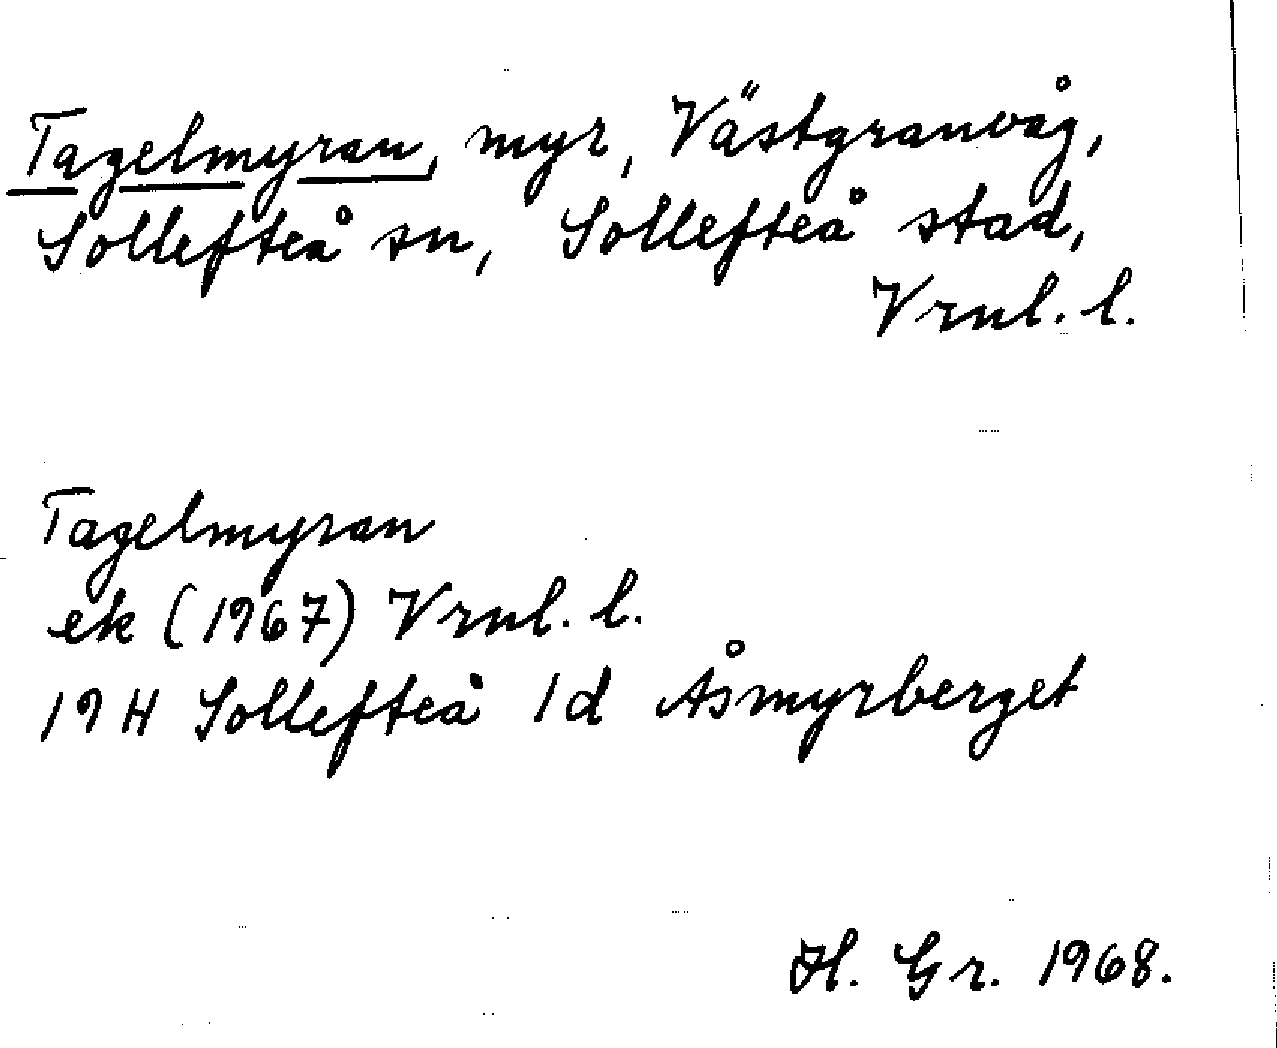 Tagelmyran, myr, Västgranvåg,
Sollefteå sn, Sollefteå stad,
Vrnl. l.
Tagelmyran
ek (1967) Vrnl. l.
19 H Sollefteå 1d Åsmyrberget
H. Gr. 1968.